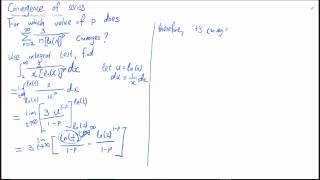 Convergence of series
For which value of p does
∑_{n=2}^{∞} 3/(n[ln(n)]^p) converges?
Use integral test, find
∫_2^∞ 3/(x[ln(x)]^p) dx
let u = ln(x)
du = 1/x dx
= ∫_{ln(2)}^{∞} 3/u^p du
= lim_{t→∞} [3 u^{1-p}/(1-p)]_{ln(2)}^{ln(t)}
= 3 lim_{t→∞} [ln(t)^{1-p}/(1-p) - ln(2)^{1-p}/(1-p)]
therefore, it's conv